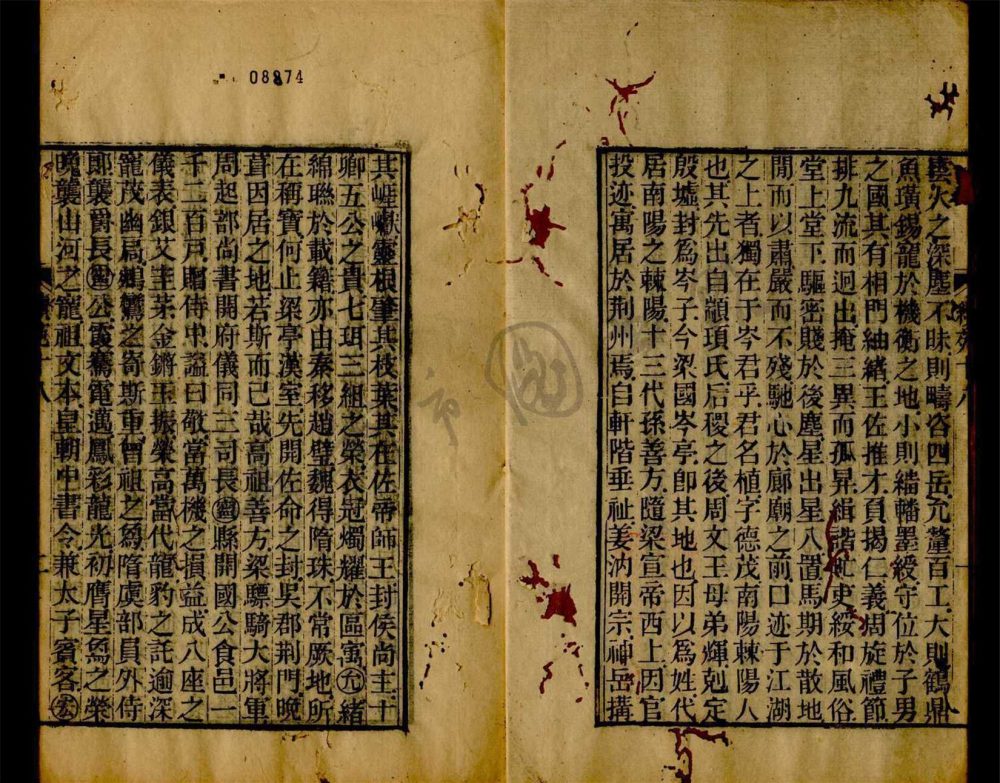 08974
火之深塵不昧則疇咨四岳允釐百工大則鶴鼎
魚璜錫寵於機衡之地小則繡幡墨綬守位於子男
之國其有相門紬緒王佐推才負揭仁義周旋禮節
排九流而迥出掩三異而孤昇緝諧虻吏綏和風俗
堂上堂下驅密賤於後塵星出星入置馬期於散地
閒而以肅嚴而不殘馳心於廊廟之前口迹于江湖
之上者獨在于岑君乎君名植字德茂南陽棘陽人
也其先出自顓頊氏后稷之後周文王母弟輝剋定
殷墟封爲岑子今梁國岑亭卽其地也因以爲姓代
居南陽之棘陽十三代孫善方隨梁宣帝西上因官
投迹寓居於荆州焉自軒階垂祉姜汭開宗神岳搆
其嵯嶬靈根肇其枝葉其在佐帝師王封侯尚主十
卿五公之貴七珥三組之榮衣冠燭耀於區寓允緒
綿聯於載籍亦由秦移趙璧魏得隋珠不常厥地所
在稱寶何止梁亭漢室先開佐命之封吳郡荆門晚
葺因居之地若斯而已哉高祖善方梁驃騎大將軍
周起部尚書開府儀同三司長寧縣開國公食邑一
千二百戸贈侍中謚曰敬當萬機之損益成八座之
儀表銀艾圭茅金鏘玉振榮高當代龍豹之託逾深
寵茂幽扃鵷鸞之寄斯重曾祖之爲隋虞部員外侍
郎襲爵長寧公霞騫電邁鳳彩龍光初膺星舄之榮
晚襲山河之寵祖文本皇朝中書令兼太子賓客宏